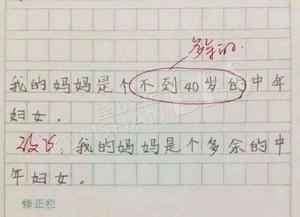 多余的
我的妈妈是个不到40岁的中年
妇女。
：我的妈妈是个多余的中
年妇女。
修正栏